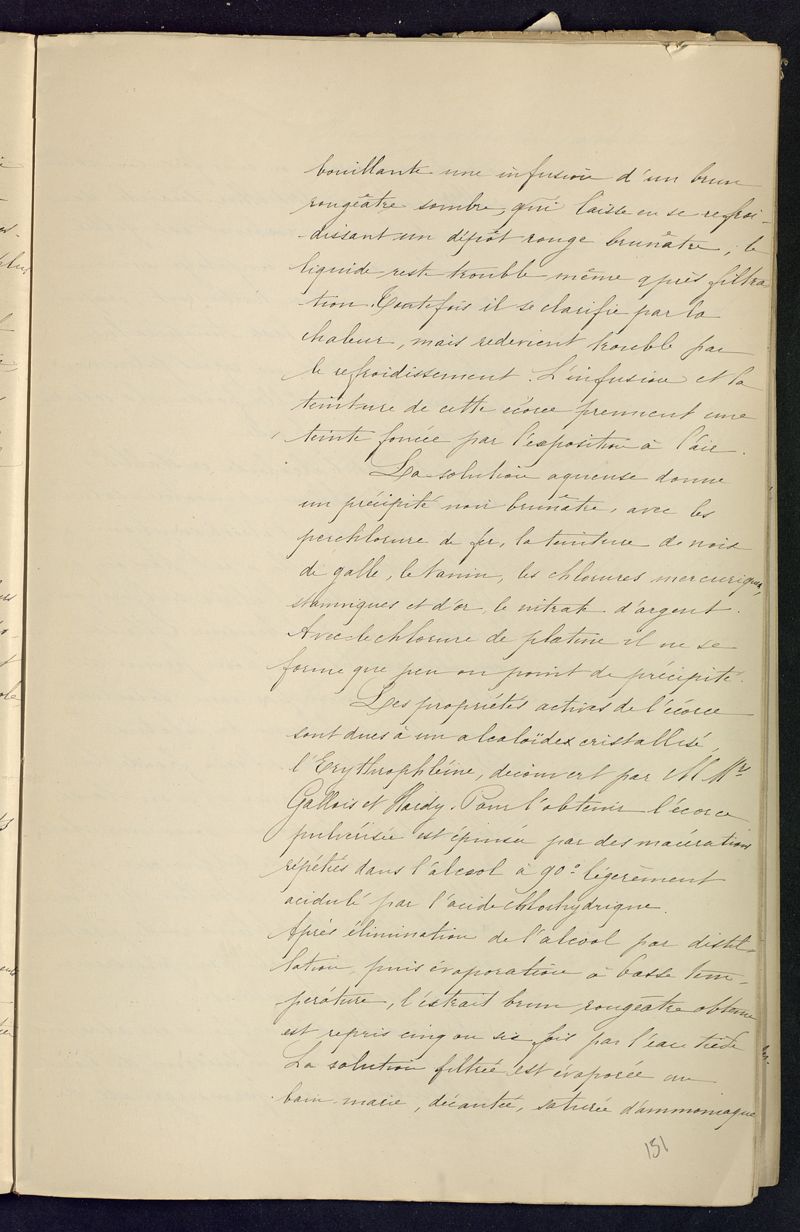 bouillante une infusion d'un brun
rougeâtre sombre, qui laisse en se refroi-
dissant un dépôt rouge brunâtre ; le
liquide reste trouble même après filtra
tion. Toutefois il se clarifie par la
chaleur, mais redevient trouble par
le refroidissement. L'infusion et la
teinture de cette écorce prennent une
teinte foncée par l'exposition à l'air.
La solution aqueuse donne
un précipité noir brunâtre, avec les
perchlorure de fer, la teinture de noix
de galle, le tanin, les chlorures mercuriques,
stanniques et d'or, le nitrate d'argent.
Avec le chlorure de platine il ne se
forme que peu ou point de précipité.
Les propriétés actives de l'écorce
sont dues à un alcaloïdes cristallisé,
l'Erythrophléine, découvert par MMrs
Gallois et Hardy. Pour l'obtenir l'écorce
pulvérisée est épuisée par des macérations
répétés dans l'alcool à 90° légerèment
acidulé par l'acide chlorhydrique.
Après élimination de l'alcool par distil-
lation, puis évaporation à basse tem-
pérature, l'extrait brun rougeâtre obtenu
est repris cinq ou six fois par l'eau tiède
La solution filtrée est évaporée au
bain-marie, décantée, saturée d'ammoniaque
151